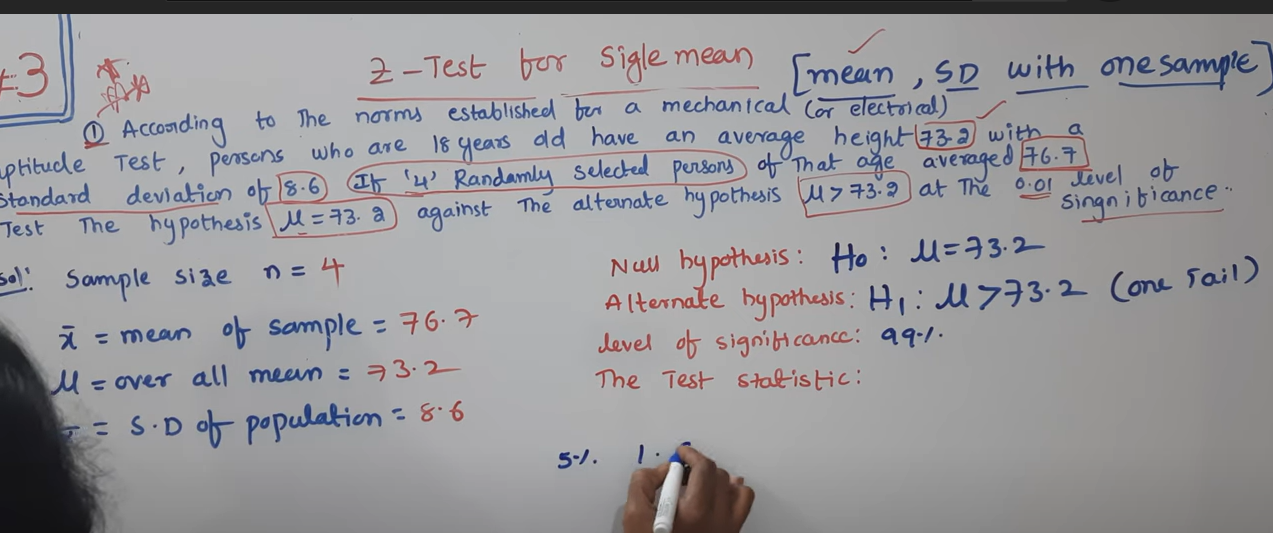 #3
Z-Test for Sigle mean [mean, SD with one sample]
① According to The norms established for a mechanical (or electrical)
ptitude Test, persons who are 18 years old have an average height 73.2 with a
Standard deviation of 8.6 If '4' Randamly selected persons of That age averaged 76.7
Test The hypothesis μ = 73.2 against The alternate hypothesis μ > 73.2 at The 0.01 level of
singnificance..
Sol: Sample size n = 4
x̄ = mean of sample = 76.7
μ = over all mean = 73.2
= S.D of population = 8.6
Null hypothesis: H₀: μ = 73.2
Alternate hypothesis: H₁: μ > 73.2 (one Tail)
level of significance: 99%.
The Test statistic:
5%. 1.